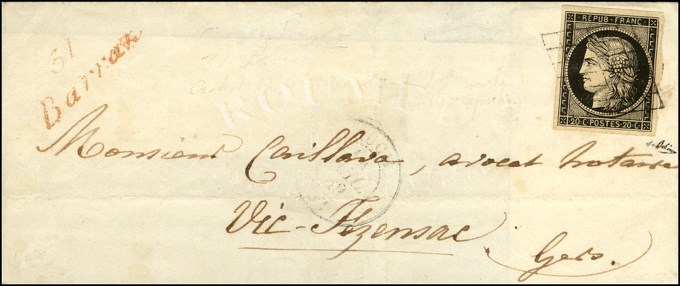 REPUB. FRANC.
20 C. POSTES. 20 C.
31
Barran
Monsieur Caillava, avocat notaire
Vic-Fezensac
Gers.